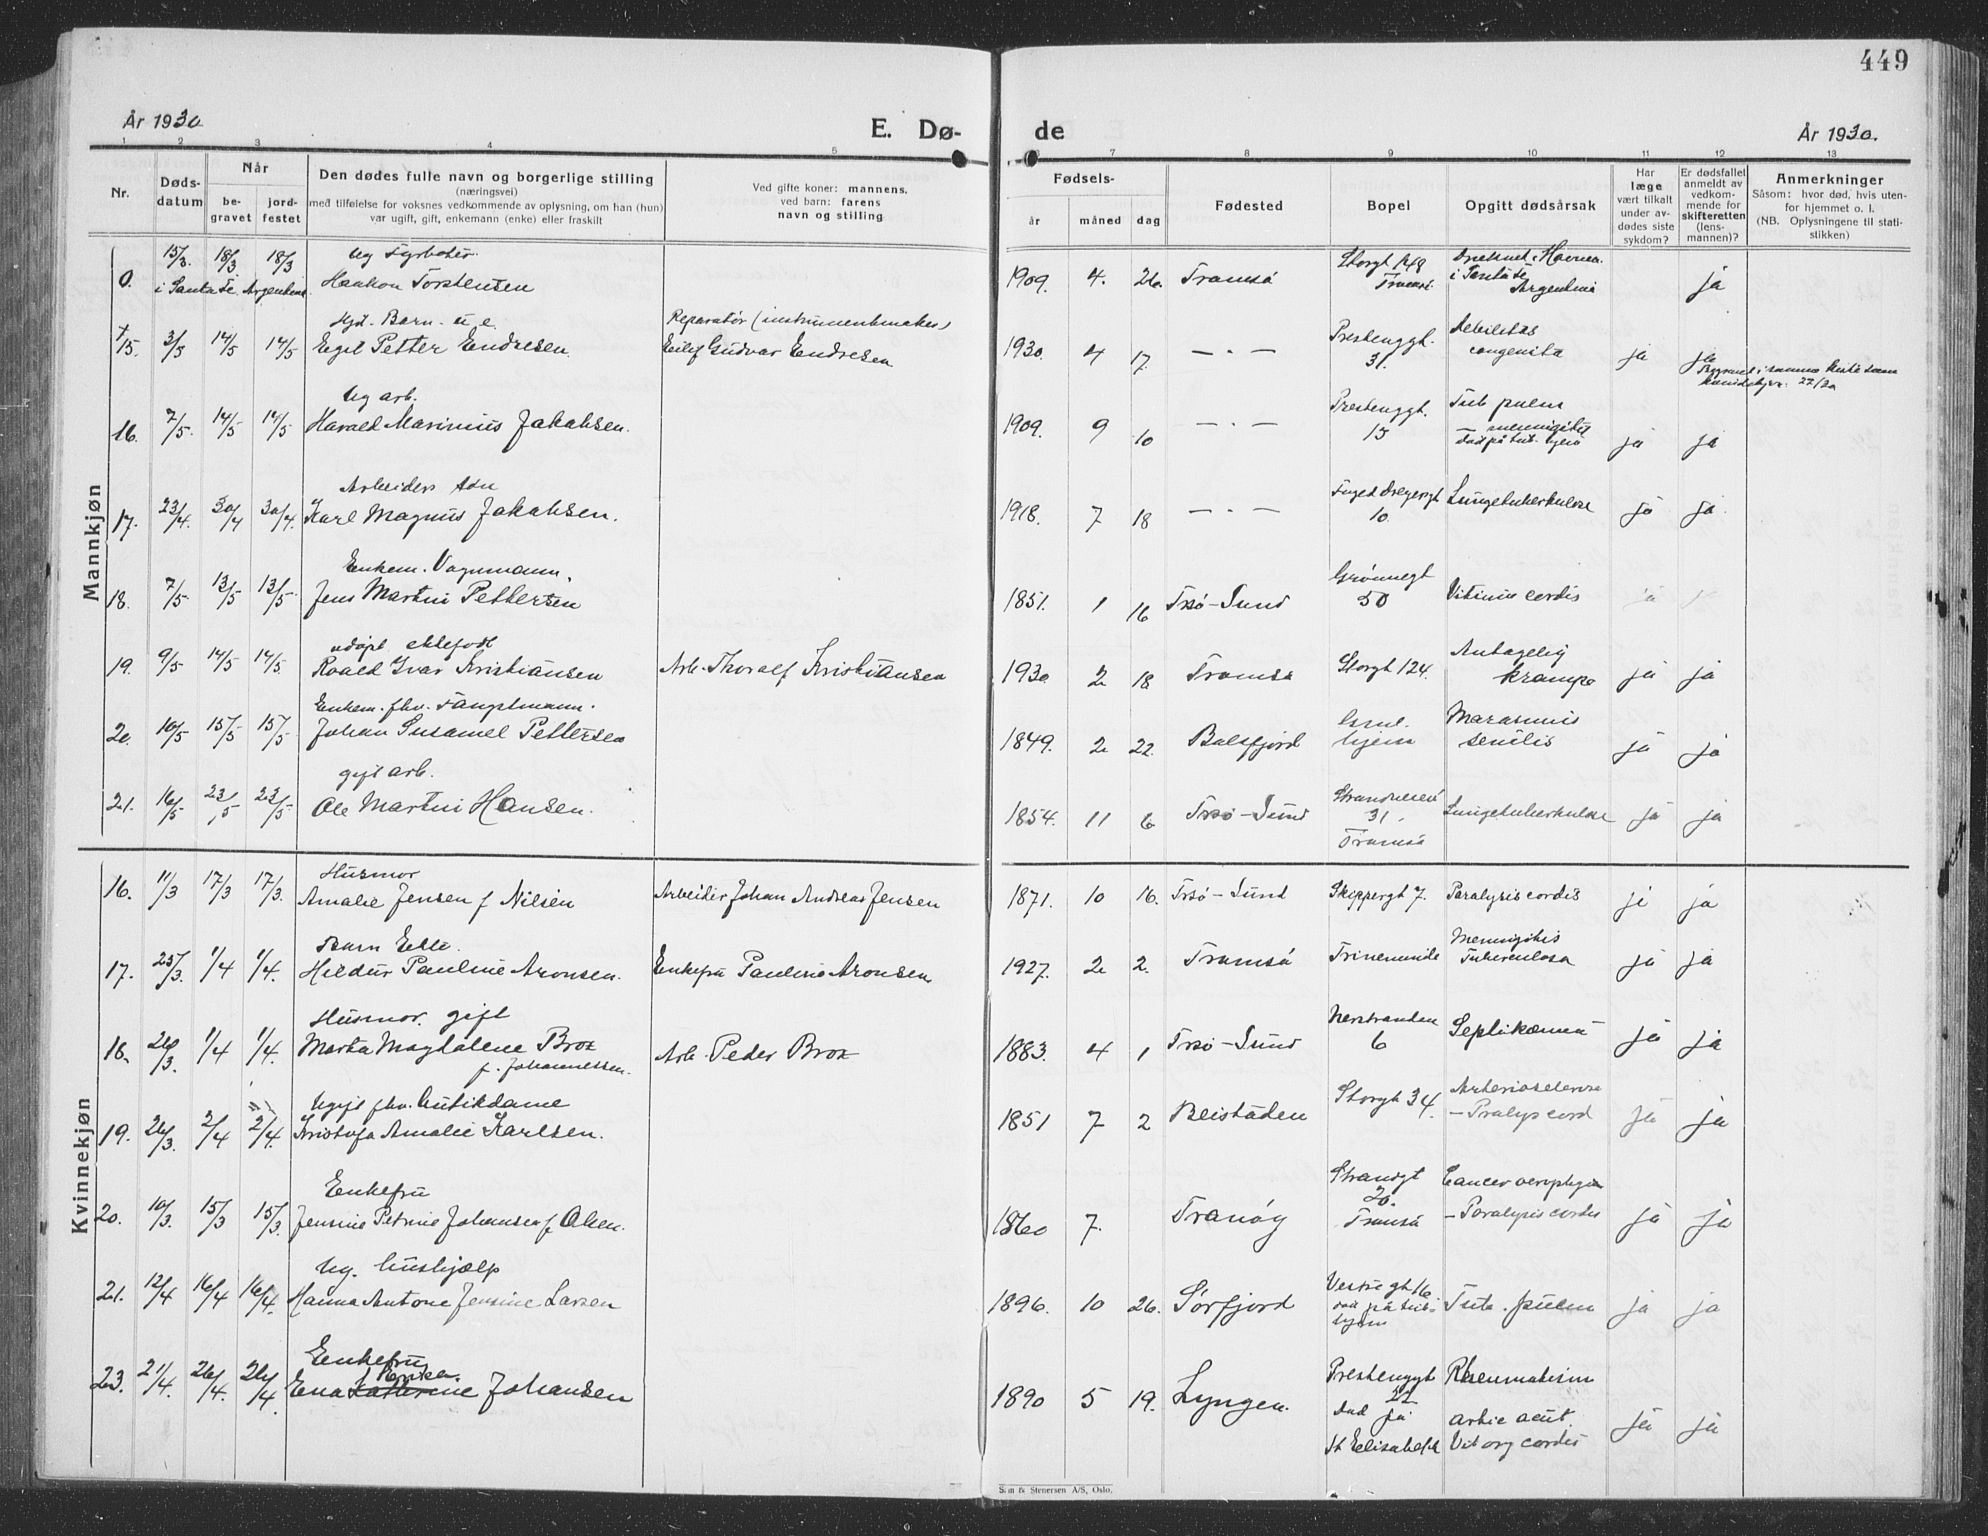 449
År 1930
E. Dø-
de
År 1930.
1 2 3 4 5 7 8 9 10 11 12 13
Nr.
Døds-
datum
Når
be-
gravet
jord-
festet
Den dødes fulle navn og borgerlige stilling
(næringsvei)
med tilføielse for voksnes vedkommende av oplysning, om han (hun)
var ugift, gift, enkemann (enke) eller fraskilt
Ved gifte koner: mannens,
ved barn: farens
navn og stilling
Fødsels-
år
måned
dag
Fødested
Bopel
Opgitt dødsårsak
Har
læge
vært tilkalt
under av-
dødes siste
sykdom?
Er dødsfallet
anmeldt av
vedkom-
mende for
skifteretten
(lens-
mannen)?
Anmerkninger
Såsom: hvor død, hvis uten-
for hjemmet o. l.
(NB. Oplysningene til stati-
stikken)
Mannkjøn
Ug Fyrbøter
0. 15/3. 18/3 18/3 Haakon Torstensen 1909. 4. 26. Tromsø Storgt 148 Tromsø. druknet i Havnen ja
i Santa Fe Argentina
i Santa Fe
Argentina
Barn
Reparatør (instrumentmaker)
15. 3/5 14/5 14/5 Egil Petter Endresen. Eilif Gudvar Endresen 1930. 4 17. — " — Prestenggt. 31. Debilitas congenita ja ja
i samme kiste som
22/30
Ug arb.
16. 7/5. 14/5 14/5 Harald Marinius Jakobsen. 1909. 9 10 — " — Prestenggt. 13 Tub pulm
— meningitis
død på tub. hjem ja ja
Arbeiders søn
17. 23/4. 30/4 30/4. Karl Magnus Jakobsen. 1918. 7 18 — " — Foged Dreyersgt 10. Lungetuberkulose ja ja.
Enkem. Vognmann.
18. 7/5 13/5 13/5. Jens Martin Pettersen 1851. 1 16 Trsø-Sund Grønnegt 50 Vitium cordis ja
adopt. ektefødt
19. 9/5 14/5 14/5. Roald Ivar Kristiansen Arb. Thoralf Kristiansen 1930 2 18 Tromsø Storgt 124. Antagelig krampe ja ja
Enkem. fhv. Fangstmann.
20. 10/5 15/5 15/5 Johan Susamel Pettersen 1849. 2 22. Balsfjord Gml. hjem Marasmus senilis ja ja
gift arb.
21. 16/5 23/5 23/5 Ole Martin Hansen. 1854. 11 6 Trsø-Sund Strandveien 31, Tromsø Lungetuberkulose ja ja
Kvinnekjøn
Husmor
16. 11/3 17/3 17/3. Amalie Jensen f Nilsen Arbeider Johan Andreas Jensen 1871. 10 16. Trsø-Sund Skippergt 7. Paralysis cordis ja ja
Barn Ekte.
17. 25/3. 1/4 1/4. Hildur Pauline Aronsen. Enkefru Pauline Aronsen 1927. 2 2. Tromsø Meningitis Tuberculosa ja ja
Husmor. gift
18. 26/3. 1/4 1/4. Marta Magdalene Brox
f. Johannessen. Arb. Peder Brox 1883. 4 1 Trsø-Sund Nerstranden 6 Septikæmia ja ja
Ugift fhv. Butikdame
19. 26/3. 2/4 2/4. Kristofa Amalie Karlsen. 1851 7 2 Beistaden Storgt 34. Arteriosclerose
— Paralys cord ja ja
Enkefru
20. 10/3. 15/3 15/3. Jensine Petrine Johansen f Olsen. 1860 7. Tranøy Strandgt 20. Tromsø Cancer
— Paralysis cordis ja ja
Ug. hushjælp
21. 12/4 16/4 16/4. Hanna Antone Jensine Larsen 1896. 10 26. Sørfjord Vestregt 16
død på tub.
hjem Tub. pulm ja ja
Enkefru
23. 21/4. 26/4. 26/4. Ena Johansen 1890 5 19. Lyngen. Prestenggt 22
død på
St Elisabeth Rheumatism
artic acut.
Vit org cordis ja ja
Sem & Stenersen A/S, Oslo.